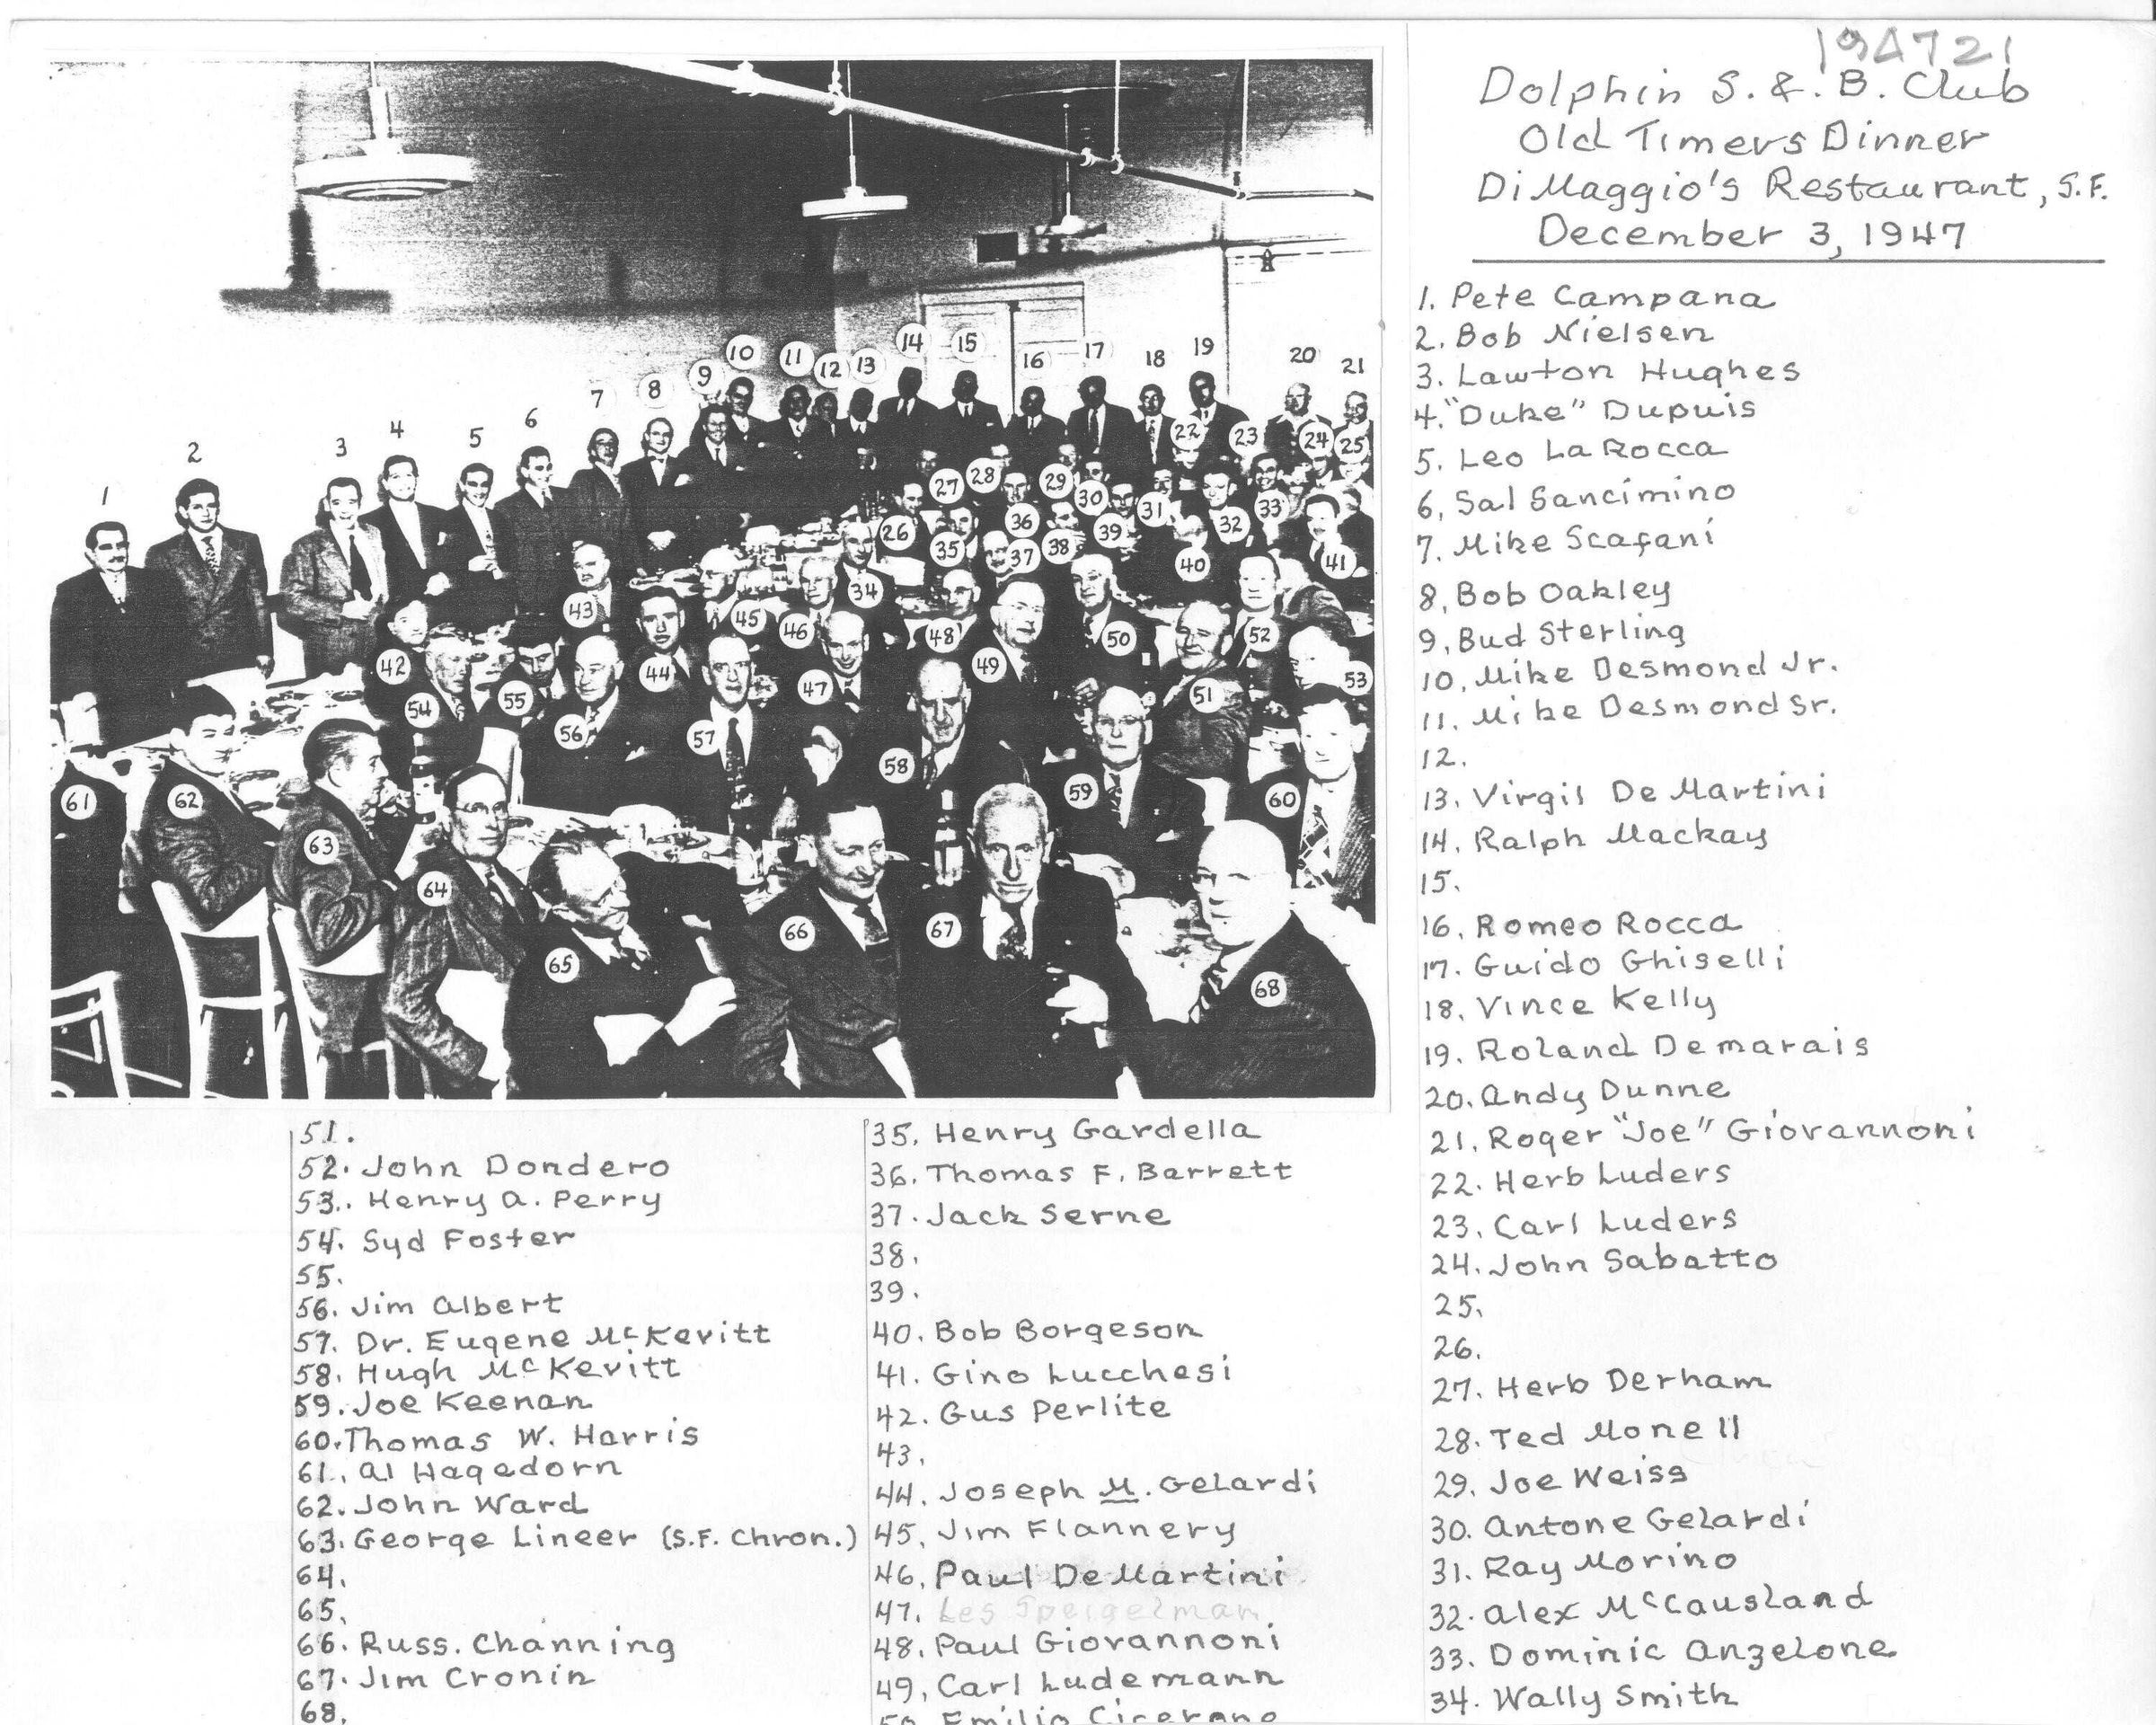 194721
Dolphin S. & B. Club
Old Timers Dinner
DiMaggio's Restaurant, S.F.
December 3, 1947
1. Pete Campana
2. Bob Nielsen
3. Lawton Hughes
4. "Duke" Dupuis
5. Leo La Rocca
6. Sal Sancimino
7. Mike Scafani
8. Bob Oakley
9. Bud Sterling
10. Mike Desmond Jr.
11. Mike Desmond Sr.
12.
13. Virgil De Martini
14. Ralph Mackay
15.
16. Romeo Rocca
17. Guido Ghiselli
18. Vince Kelly
19. Roland Demarais
20. Andy Dunne
21. Roger "Joe" Giovannoni
22. Herb Luders
23. Carl Luders
24. John Sabatto
25.
26.
27. Herb Derham
28. Ted Monell
29. Joe Weiss
30. Antone Gelardi
31. Ray Morino
32. Alex McCausland
33. Dominic Anzelone
34. Wally Smith
35. Henry Gardella
36. Thomas F. Barrett
37. Jack Serne
38.
39.
40. Bob Borgeson
41. Gino Lucchesi
42. Gus Perlite
43.
44. Joseph M. Gelardi
45. Jim Flannery
46. Paul DeMartini
47. Les Speigelman
48. Paul Giovannoni
49. Carl Ludemann
50. Emilio Cicerano
51.
52. John Dondero
53. Henry A. Perry
54. Syd Foster
55.
56. Jim Albert
57. Dr. Eugene McKevitt
58. Hugh McKevitt
59. Joe Keenan
60. Thomas W. Harris
61. Al Hagedorn
62. John Ward
63. George Lineer (S.F. Chron.)
64.
65.
66. Russ. Channing
67. Jim Cronin
68.
1
2
3
4
5
6
7
8
9
10
11
12
13
14
15
16
17
18
19
20
21
22
23
24
25
26
27
28
29
30
31
32
33
34
35
36
37
38
39
40
41
42
43
44
45
46
47
48
49
50
51
52
53
54
55
56
57
58
59
60
61
62
63
64
65
66
67
68